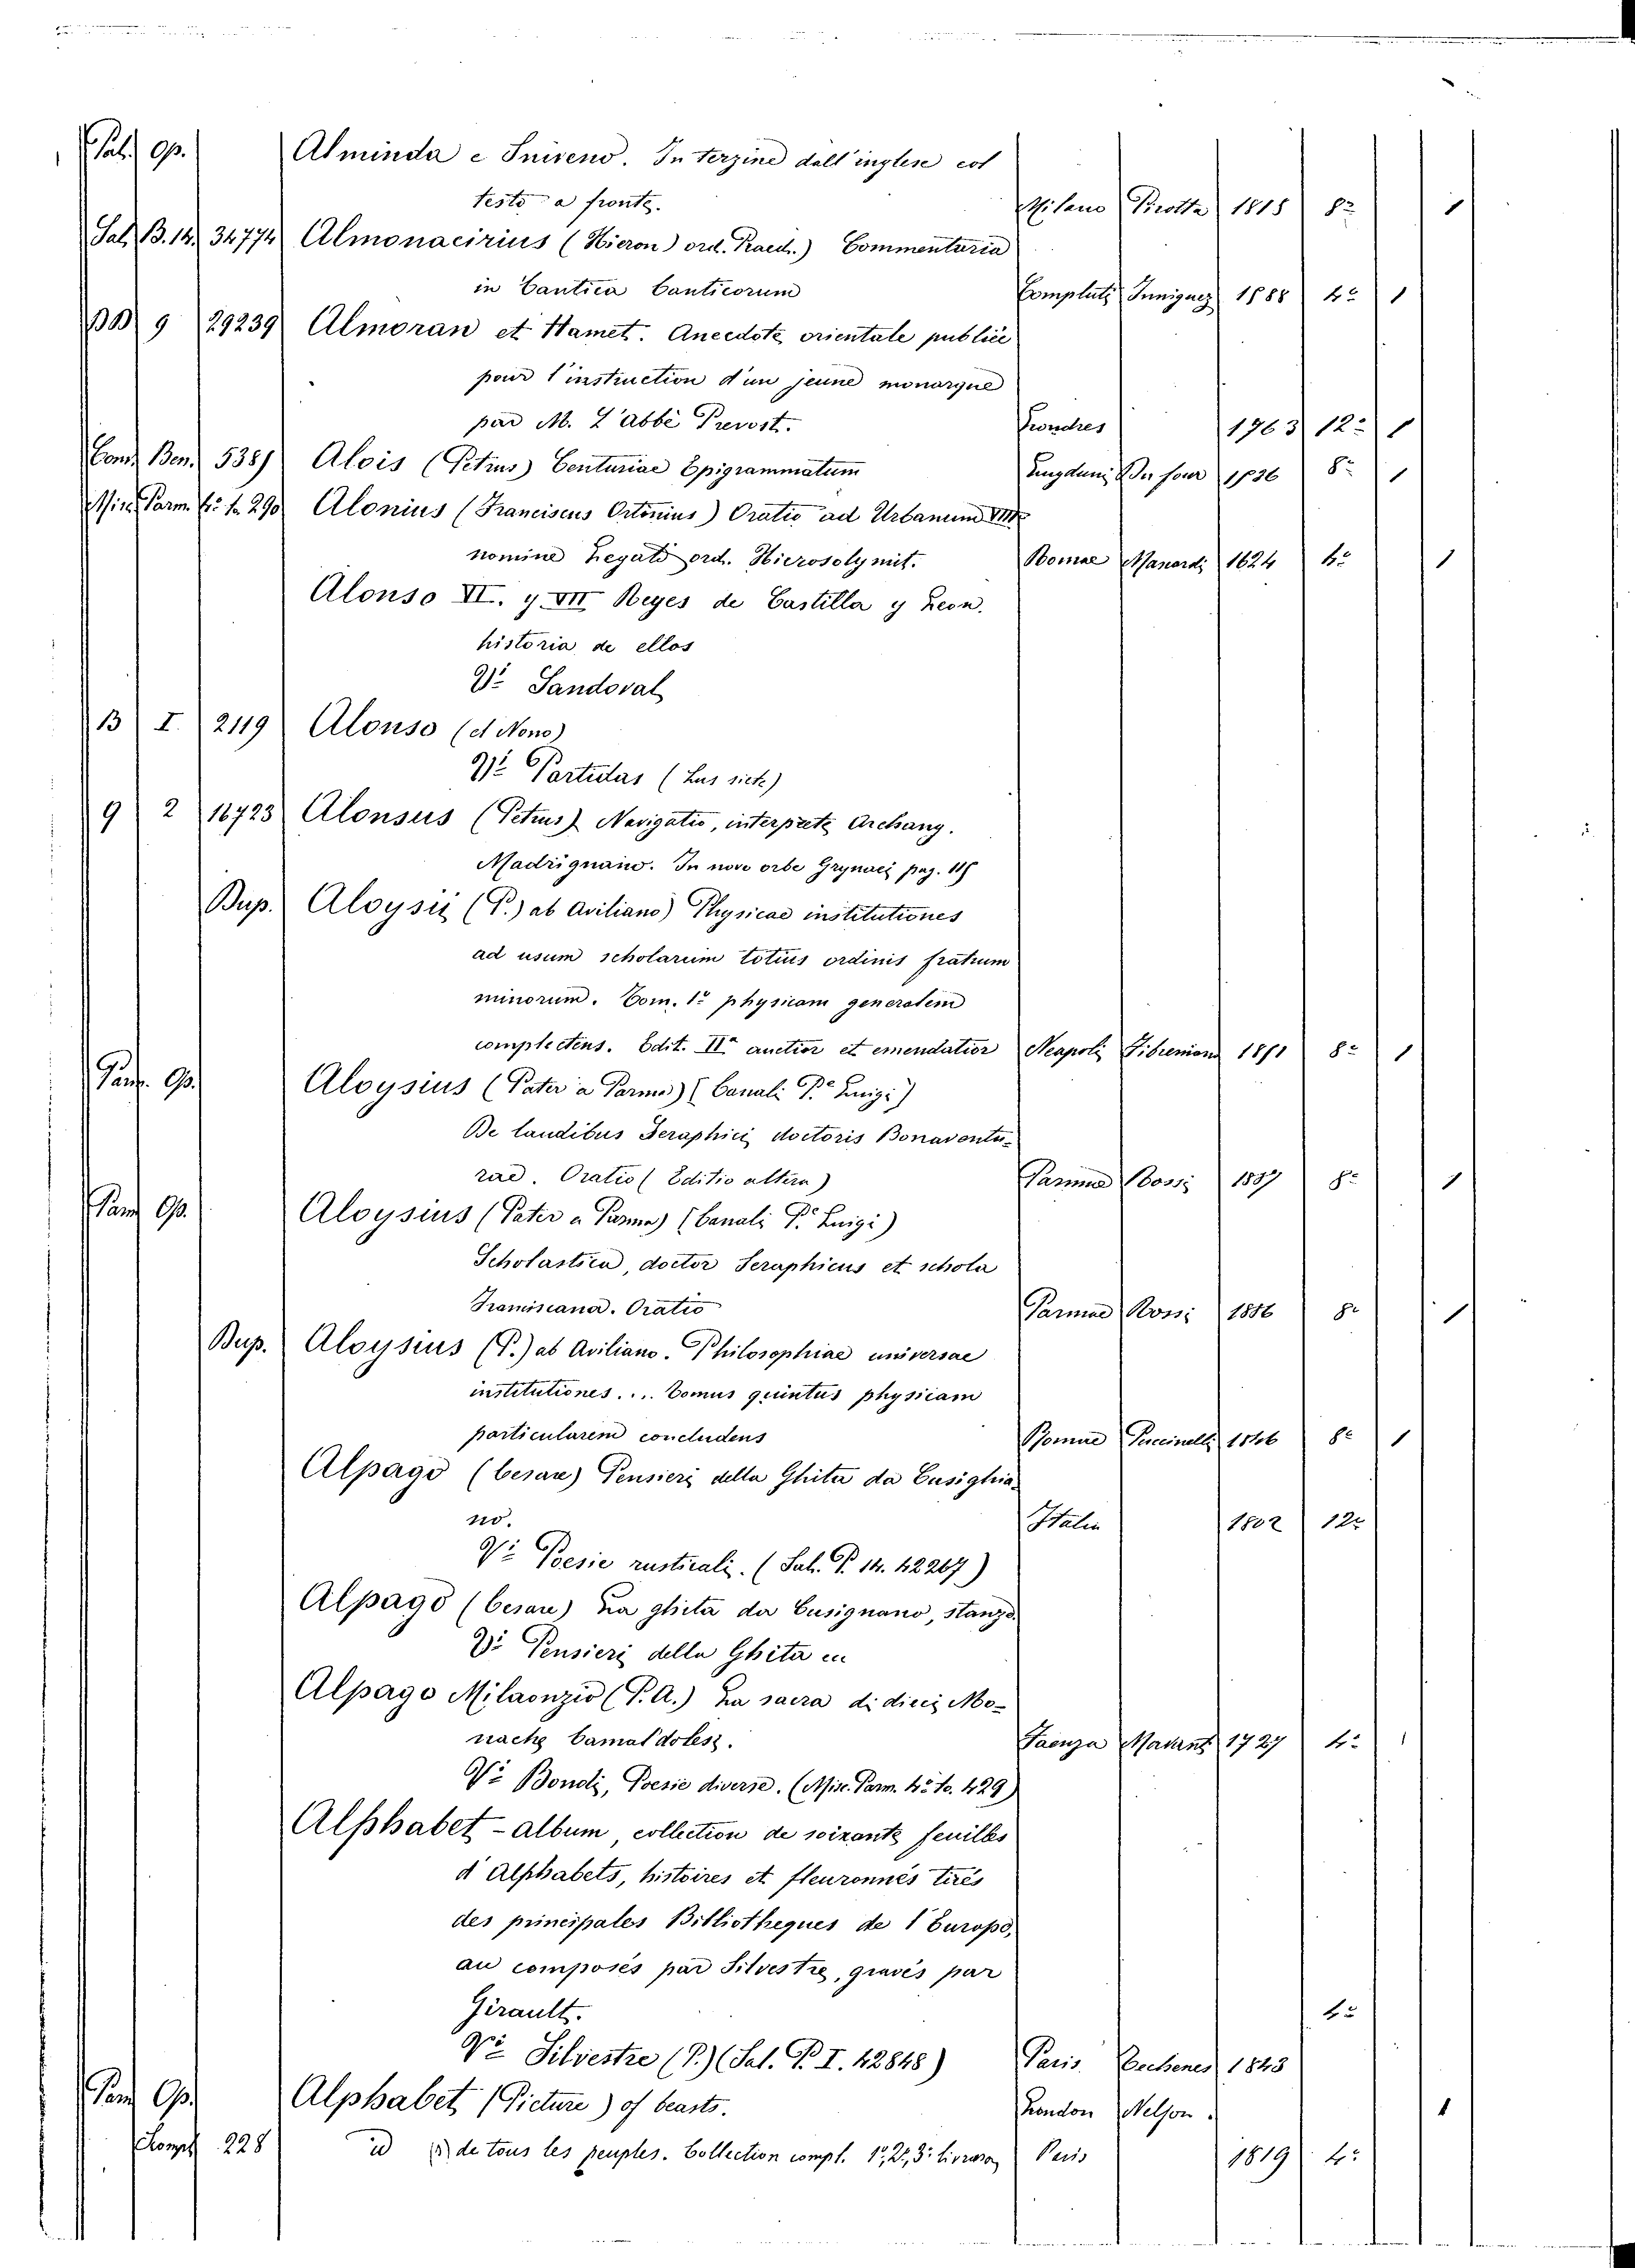 Sal. Op. Alminda e Snireno. In terzine dall'inglese col
testo a fronte. Milano Pirotta 1815 8º 1
Sal. B. 14. 34774 Almonacirius (Hieron) ord. Praed.) Commentaria
in Cantica Canticorum Compluti 1588 4º 1
BB 9 29239 Almoran et Hamet. Anecdote orientale publiée
pour l'instruction d'un jeune monarque
par M. L'abbé Prevost. Londres 1763 12º 1
Cons. Ben. 5389 Alois (Petrus) Centuriae Epigrammatum Lugduni Du four 1636 8º 1
Misc. Parm. 4º to. 290 Alonius (Franciscus Ortinius) Oratio ad Urbanum VIII
nomine Legati ord. Hierosolymit. Romae Manardi 1624 4º 1
Alonso VI. y VII Reyes de Castilla y Leon.
historia de ellos
Vº Sandoval
B I. 2119 Alonso (el Nono)
Vº Partidas (Las siete)
9 2 16723 Alonsus (Petrus) Navigatio, interprete Archang.
Madrignano. In novo orbe Grynaei pag.
Bup. Aloysii (P.) ab Aviliano) Physicae institutiones
ad usum scholarum totius ordinis fratrum
minorum. Tom. 1º physicam generalem
complectens. Edit. IIª auctior et emendatior Neapoli 8º 1
Op. Aloysius (Pater a Parma) (Canali Pe Luigi)
De laudibus Seraphici doctoris Bonaventu-
rae. Oratio (Editio altera) Parmae Rossi 8º 1
Op. Aloysius (Pater a Parma) (Canali Pe Luigi)
Scholastica, doctor Seraphicus et schola
Franciscana. Oratio Parmae Rossi 1886 8º 1
Bup. Aloysius (P.) ab Aviliano. Philosophiae universae
institutiones.... Tomus quintus physicam
particularem concludens Romae Puccinelli 1846 8º 1
Alpago (Cesare) Pensieri della Ghita da Cusighia-
no. Italia 1802 12º
Vº Poesie rusticali. (Sal. P. 14. 42267)
Alpago (Cesare) La ghita da Cusignano, stanze
Vº Pensieri della Ghita
Alpago Milaonzio (P. A.) La sacra di dieci Mo-
nache Camaldolesi. Faenza 1727 4º 1
Vº Bondi, Poesie diverse. (Misc. Parm. 4º to. 429)
Alphabet - Album, collection de soixante feuilles
d'Alphabets, histoires et fleuronnés tirés
des principales Bibliotheques de l'Europe,
au composés par Silvestre, gravés par
Girault. 4º
Vº Silvestre (P.) (Sal. P. I. 42848) Paris Techener 1843
Op. Alphabet (Picture) of beasts. London Nelson. 1
228 id de tous les peuples. Collection compl. 1º, 2º, 3º livrason Paris 1819 4º